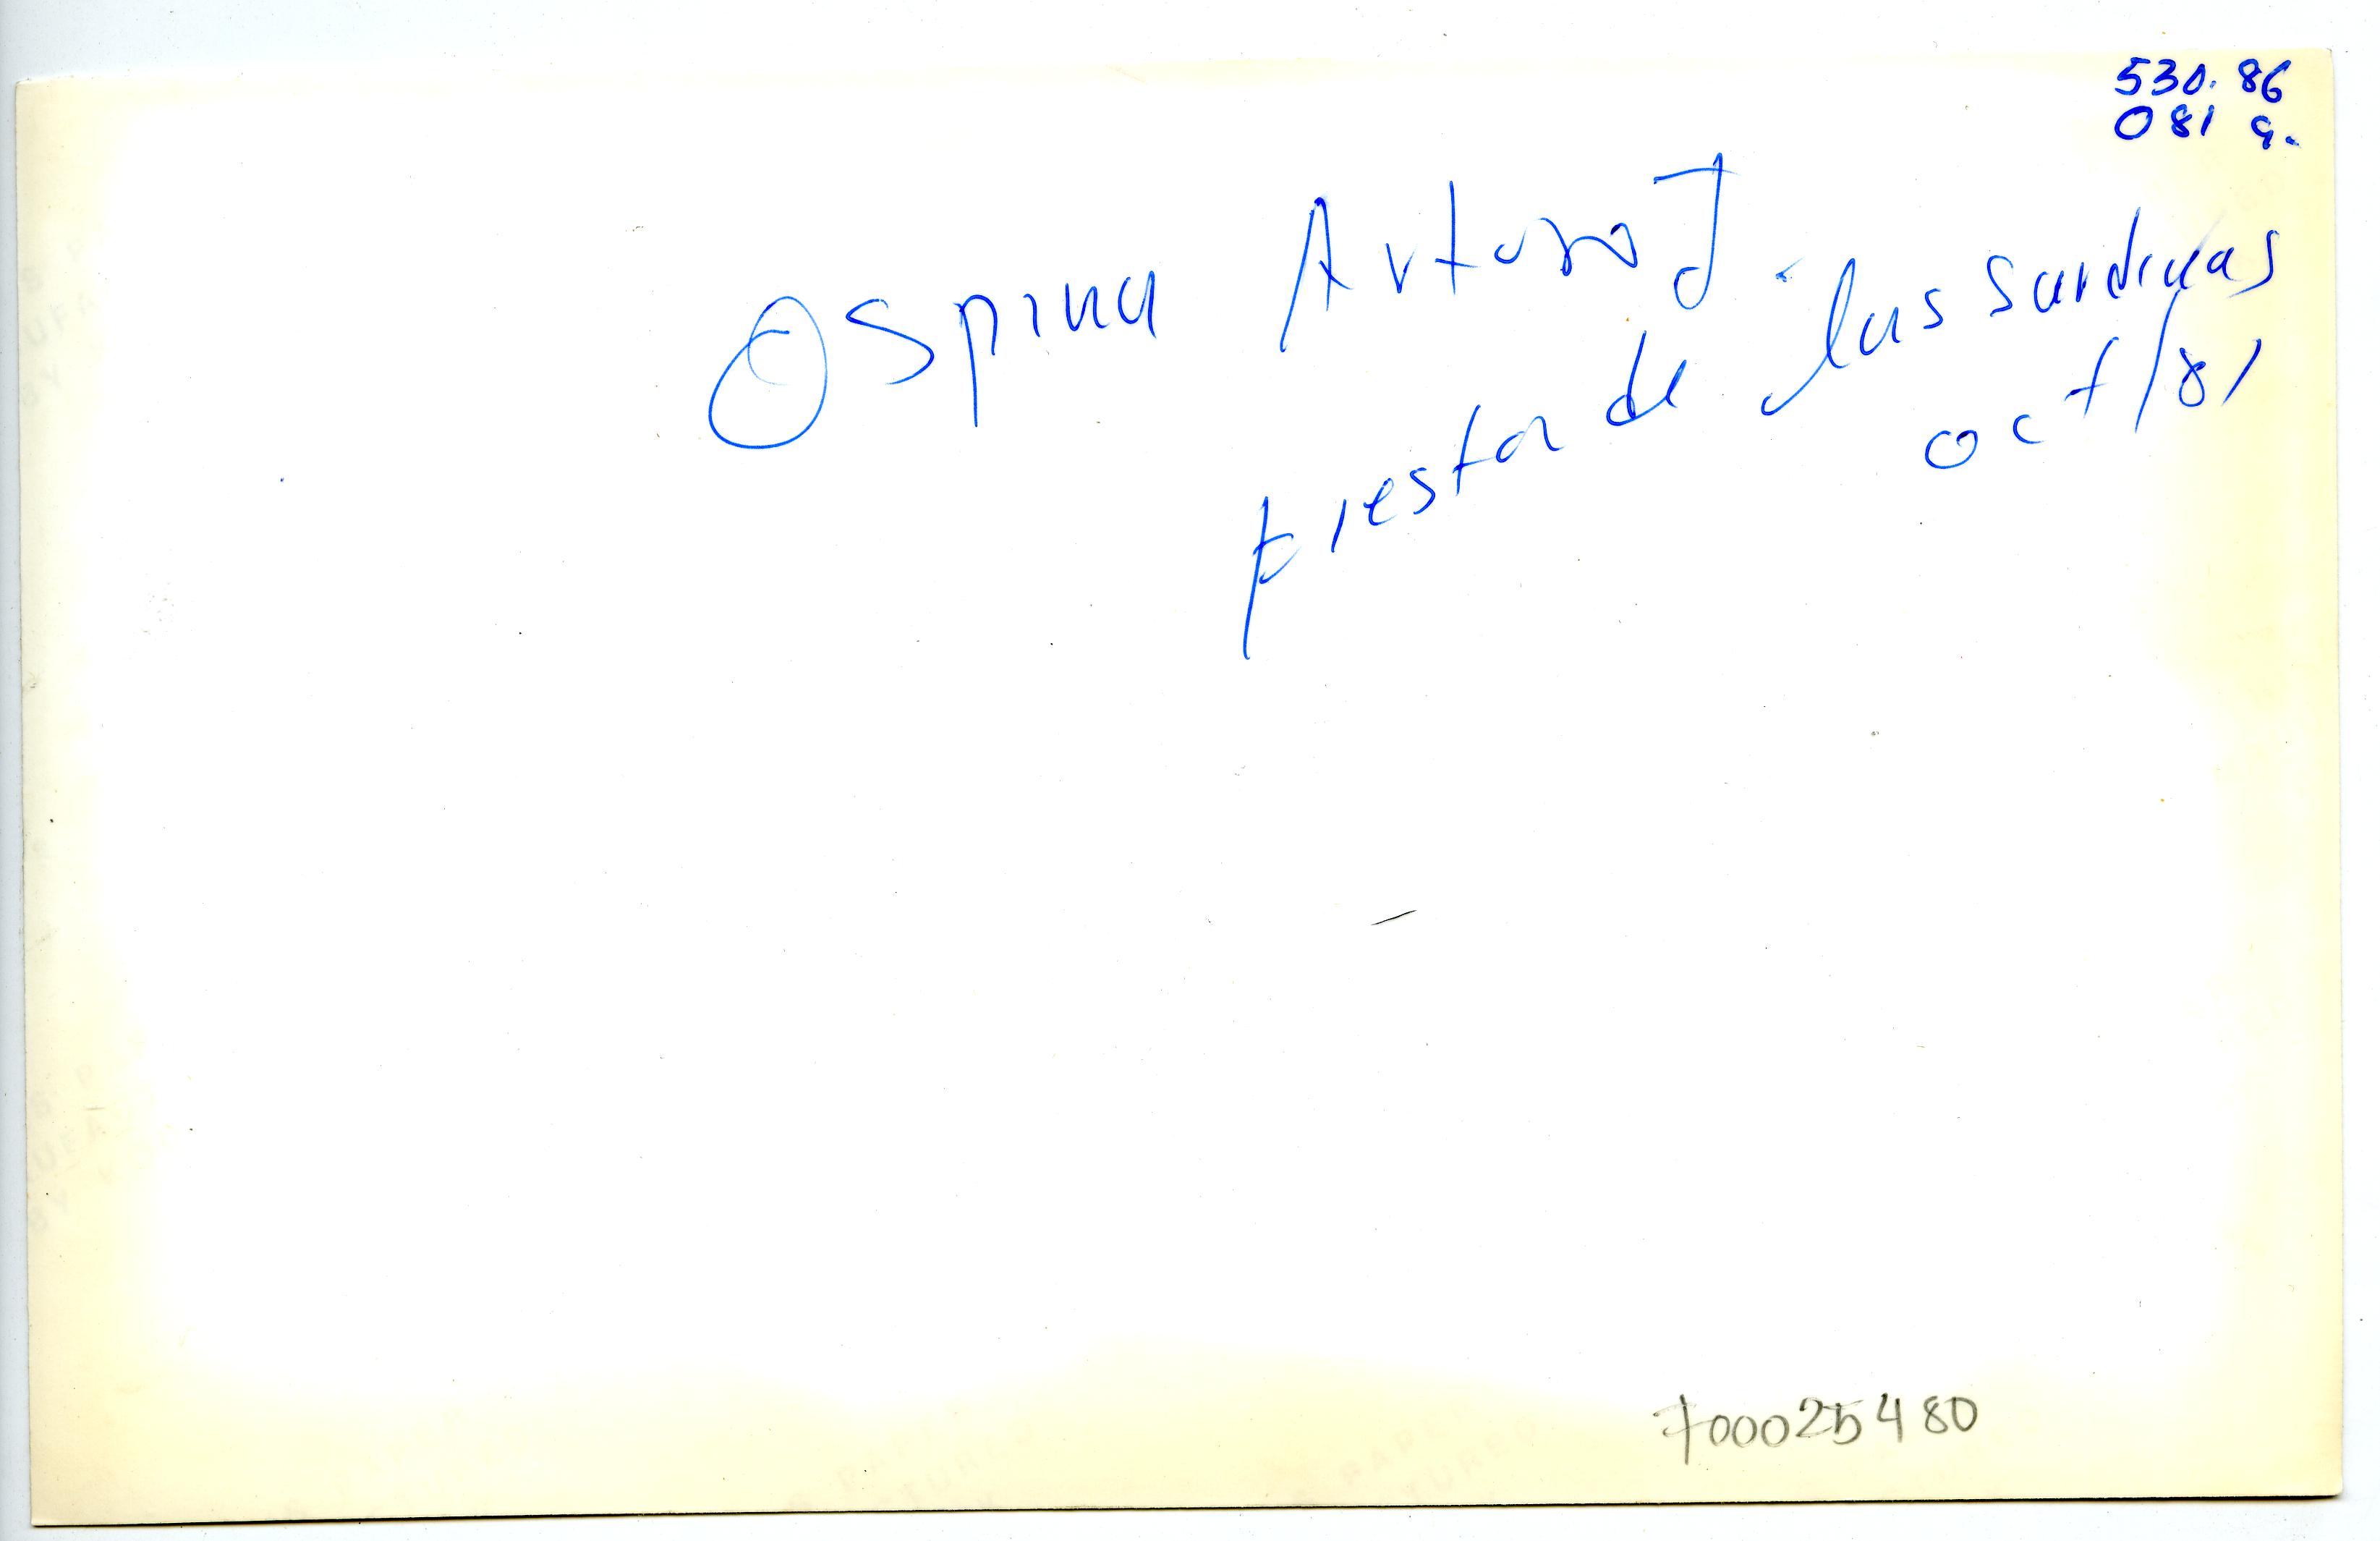 530.86
O81 a.
Ospina Arturo J.
presta de las sardinas
oct/81
700025480